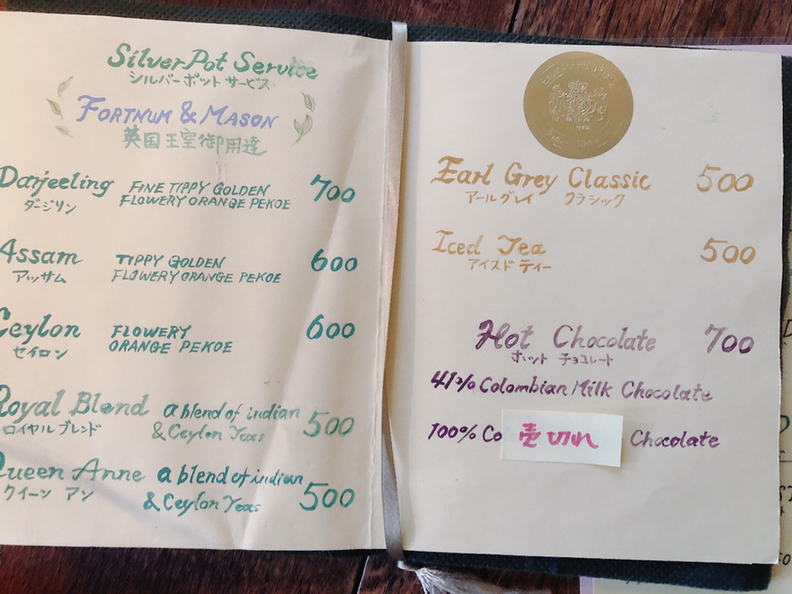 Silver Pot Service
シルバーポットサービス
FORTNUM & MASON
英国王室御用達
Darjeeling FINE TIPPY GOLDEN FLOWERY ORANGE PEKOE 700
ダージリン
Assam TIPPY GOLDEN FLOWERY ORANGE PEKOE 600
アッサム
Ceylon FLOWERY ORANGE PEKOE 600
セイロン
Royal Blend a blend of indian & Ceylon Teas 500
ロイヤルブレンド
Queen Anne a blend of indian & Ceylon Teas 500
クイーン アン
Earl Grey Classic 500
アールグレイ クラシック
Iced Tea 500
アイスド ティー
Hot Chocolate 700
ホット チョコレート
41% Colombian Milk Chocolate
100% Co 売切れ Chocolate